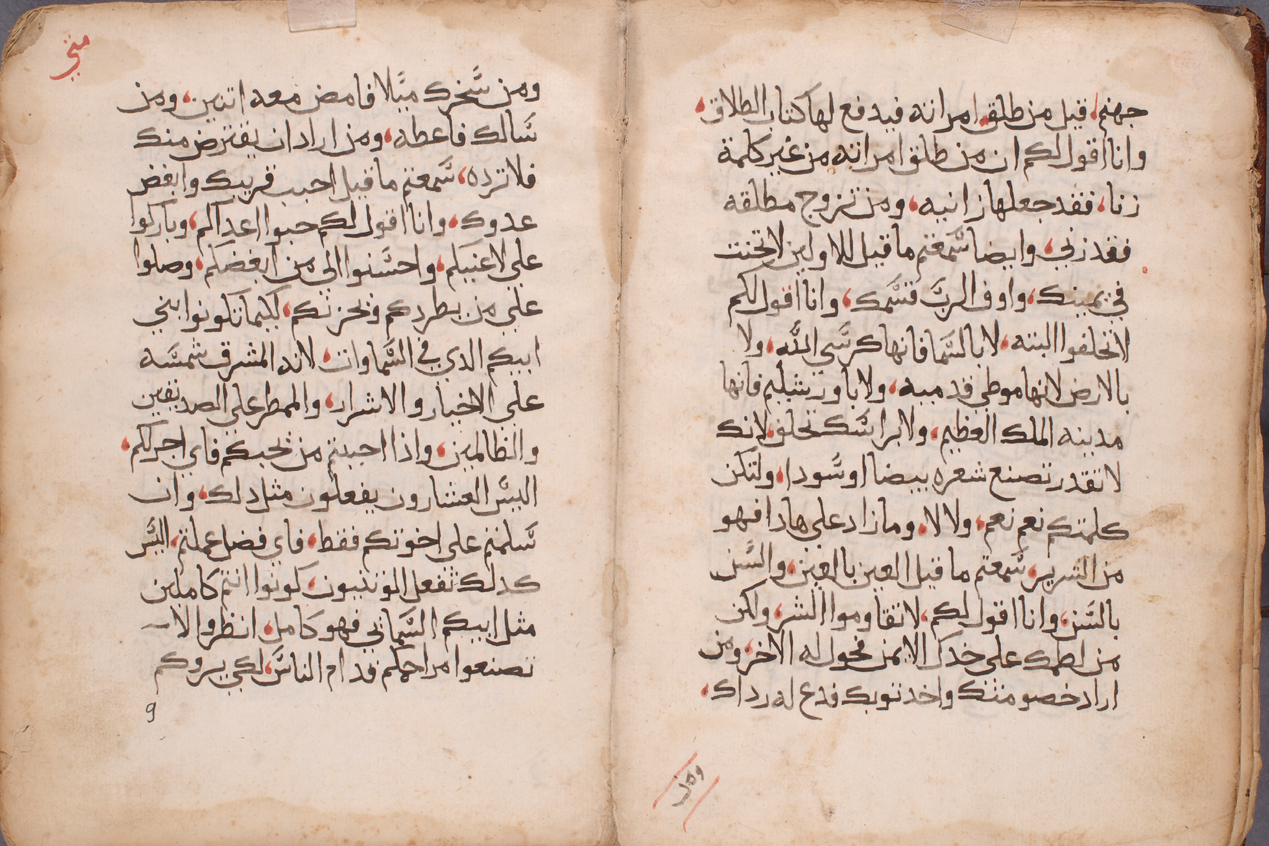 جهنم، قيل من طلق امراته فيدفع لها كتاب الطلاق،
وانا اقول لكم ان من طلق امراته من غير كلمة
زنا، فقد جعلها زانيه، ومن تزوج مطلقه
فقد زني، وايضا سمعتم ما قيل للاولين لا تحنت
في يمينك، واوف الرب قسمك، وانا اقول لكم
لا تحلفوا البته، لا بالسما فانها كرسي الله، ولا
بالارض لانها موطي قدميه، ولا باورشليم فانها
مدينه الملك العظيم، ولا براسك تحلف لانك
لا تقدر تصنع شعره بيضا او سودا، ولتكن
كلمتكم نعم نعم، ولا لا، وما زاد على هادا فهو
من الشرير، سمعتم ما قيل العين بالعين، والسن
بالسن، وانا اقول لكم، لا تقاوموا الشر، ولكن
من لطمك على خدك الايمن فحول له الاخر، ومن
اراد خصومتك واخد توبك فدع له رداك،
ومن
متي
ومن سخرك ميلا فامض معه اتنين، ومن
سالك فاعطه، ومن اراد ان يقترض منك
فلا ترده، سمعتم ما قيل احبب قريبك وابغض
عدوك، وانا اقول لكم حبوا اعداكم، وباركوا
على لاعنيكم، واحسنوا الى من ابغضكم، وصلوا
على من يطردكم ويحزنكم، لكيما تكونوا بني
ابيكم الدي في السماوات، لانه المشرق شمسه
على الاخيار والاشرار، والممطر على الصديقين
والظالمين، وادا احببتم من يحبكم فاي اجر لكم،
اليس العشارون يفعلون مثل دلك، وان
سلمتم على اخوتكم فقط، فاي فضل عملتم، اليس
كدلك تفعل الوتنيون، كونوا انتم كاملين
مثل ابيكم السماني فهو كامل، انظروا الا
تصنعوا مراحمكم قدام الناس، لكي يروكم
9